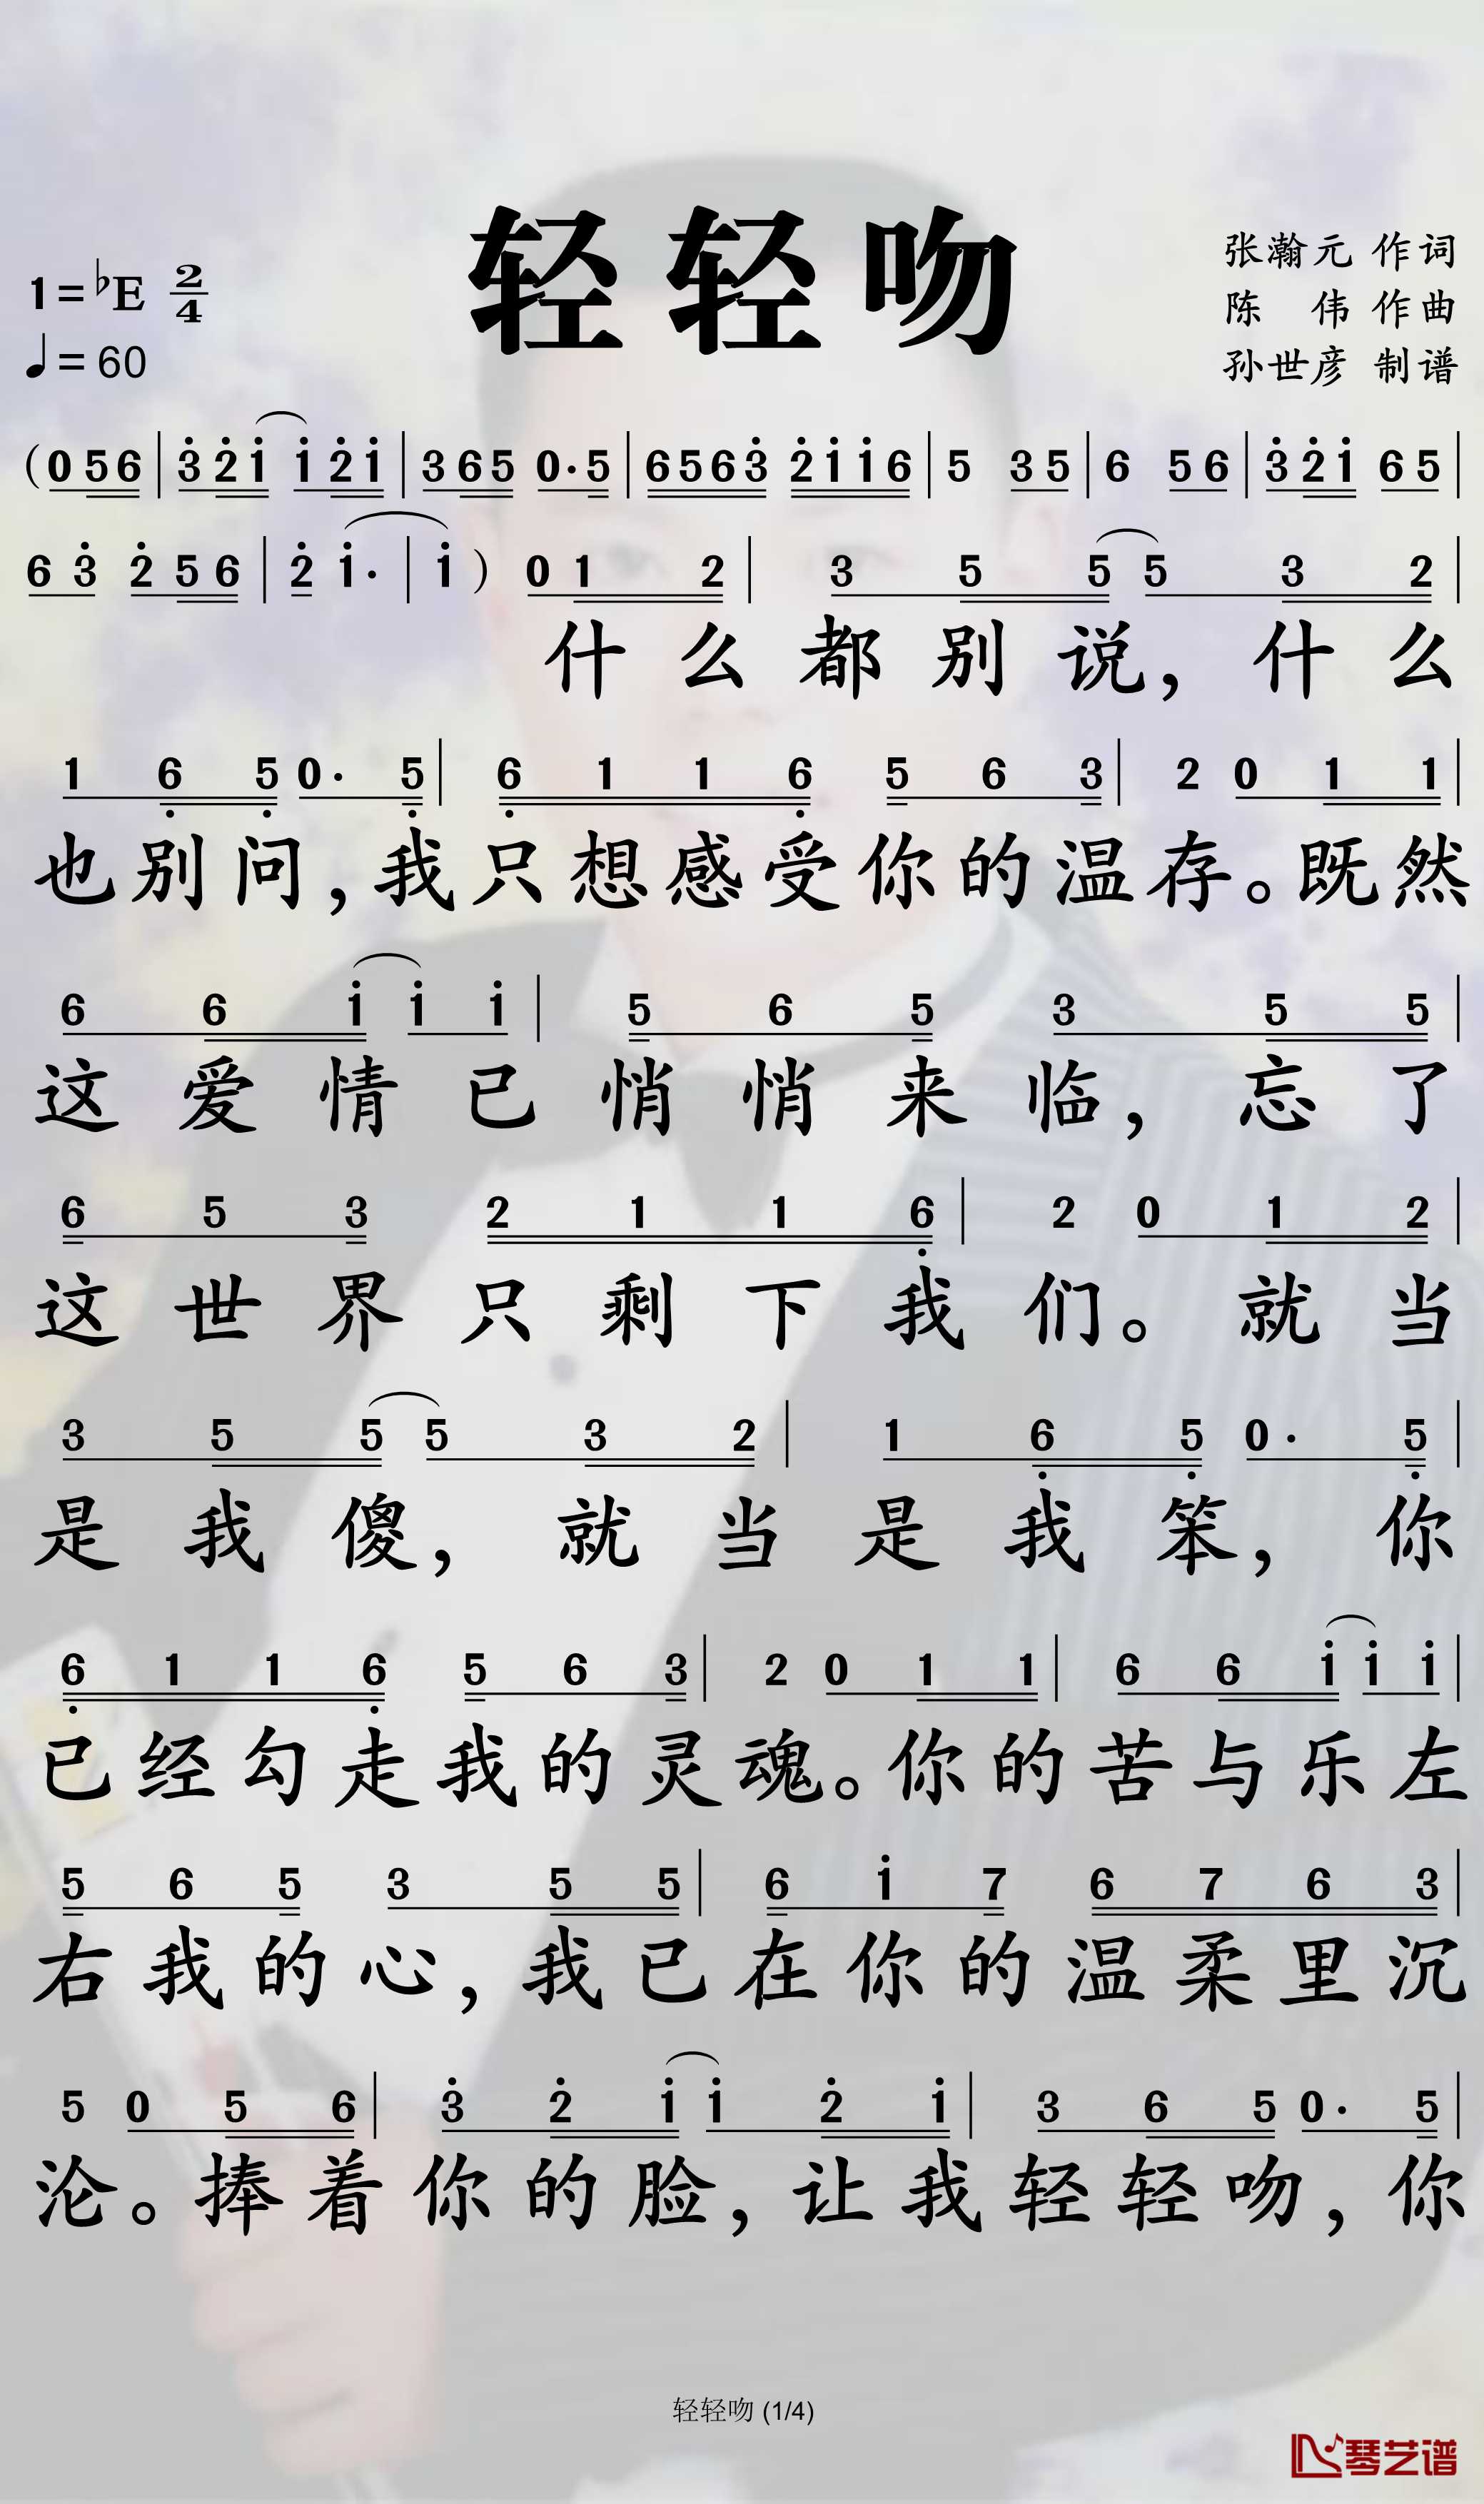 轻轻吻
1=♭E 2/4
♩=60
张瀚元 作词
陈 伟 作曲
孙世彦 制谱
(0 5 6 | 3̇ 2̇ 1̇ 1̇ 2̇ 1̇ | 3 6 5 0· 5 | 6 5 6 3̇ 2̇ 1̇ 1̇ 6 | 5 3 5 | 6 5 6 | 3̇ 2̇ 1̇ 6 5 |
6 3̇ 2̇ 5 6 | 2̇ 1̇· | 1̇ ) 0 1 2 | 3 5 5 5 3 2 |
什么都别说，什么
1 6̣ 5̣ 0· 5̣ | 6̣ 1 1 6̣ 5 6 3 | 2 0 1 1 |
也别问，我只想感受你的温存。既然
6 6 1̇ 1̇ 1̇ | 5 6 5 3 5 5 |
这爱情已悄悄来临，忘了
6 5 3 2 1 1 6̣ | 2 0 1 2 |
这世界只剩下我们。就当
3 5 5 5 3 2 | 1 6̣ 5̣ 0· 5̣ |
是我傻，就当是我笨，你
6̣ 1 1 6̣ 5 6 3 | 2 0 1 1 | 6 6 1̇ 1̇ 1̇ |
已经勾走我的灵魂。你的苦与乐左
5 6 5 3 5 5 | 6 1̇ 7 6 7 6 3 |
右我的心，我已在你的温柔里沉
5 0 5 6 | 3̇ 2̇ 1̇ 1̇ 2̇ 1̇ | 3 6 5 0· 5 |
沦。捧着你的脸，让我轻轻吻，你
轻轻吻 (1/4)
琴艺谱